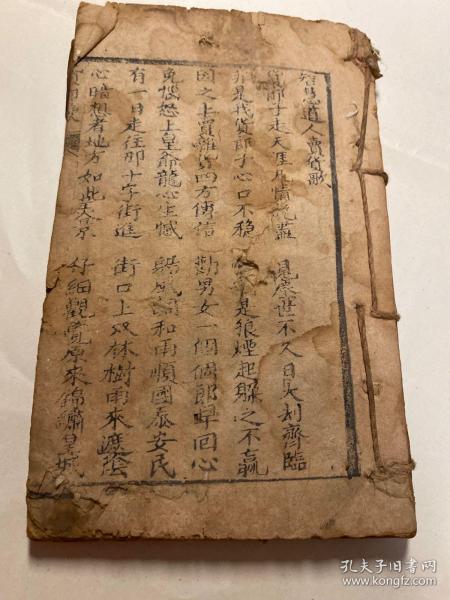 智慧道人賣貨歌
貨郎子走天涯凡情說盡 見塵世不久日大刧齊臨
是我貨郎子心口不穩 是狼煙起躲之不贏
因之上買雜貨四方傳信 勸男女一個個郎早回心
免惱怒上皇爺龍心生憾 賜風調和雨順國泰安民
有一日走在那十字街進 街口上双林樹雨來遮蔭
心暗想者地方如此大京 仔細觀覽原來錦繡皇城
孔夫子旧书网
www.kongfz.com